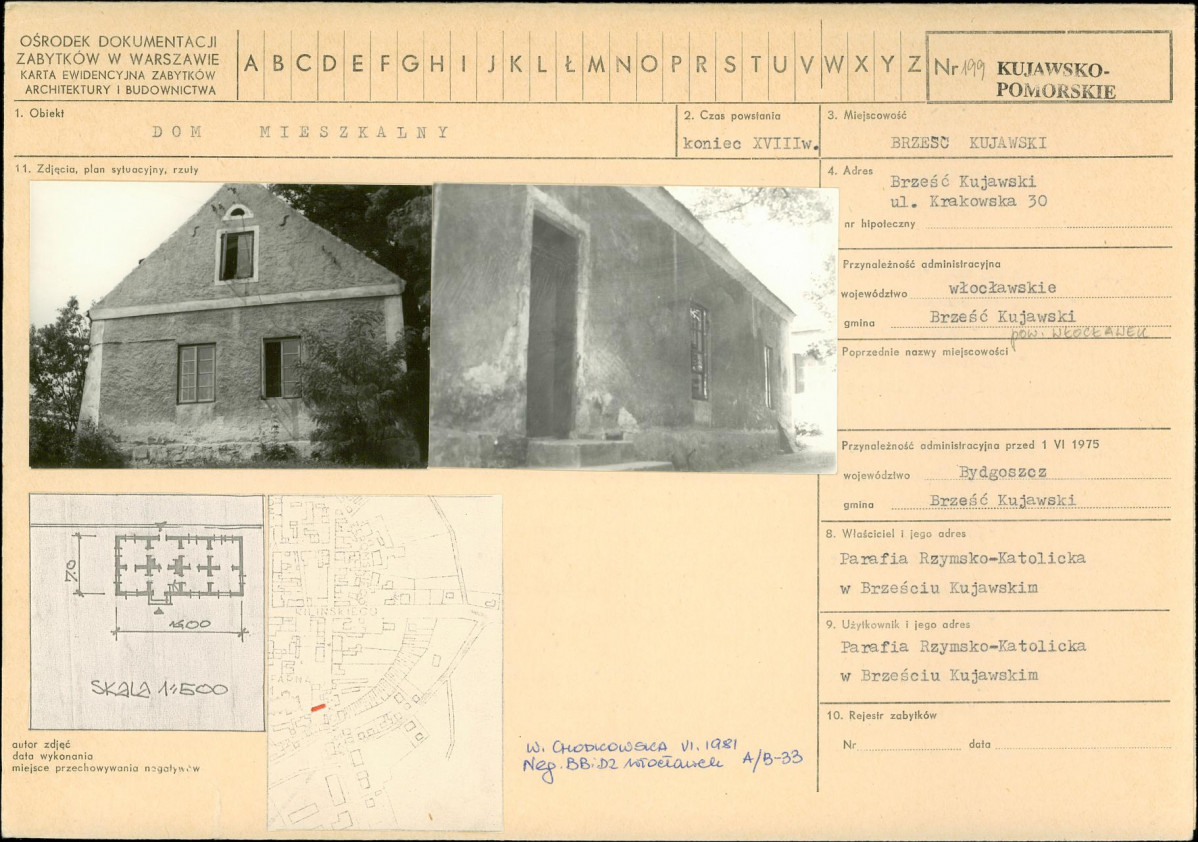 OŚRODEK DOKUMENTACJI
ZABYTKÓW W WARSZAWIE
KARTA EWIDENCYJNA ZABYTKÓW
ARCHITEKTURY I BUDOWNICTWA
A B C D E F G H I J K L Ł M N O P R S T U V W X Y Z
Nr 199
KUJAWSKO-
POMORSKIE
1. Obiekt
DOM MIESZKALNY
2. Czas powstania
koniec XVIIIw.
3. Miejscowość
BRZEŚĆ KUJAWSKI
11. Zdjęcia, plan sytuacyjny, rzuty
4. Adres
Brześć Kujawski
ul. Krakowska 30
nr hipoteczny
Przynależność administracyjna
województwo włocławskie
gmina Brześć Kujawski
pow. WŁOCŁAWEK
Poprzednie nazwy miejscowości
Przynależność administracyjna przed 1 VI 1975
województwo Bydgoszcz
gmina Brześć Kujawski
8. Właściciel i jego adres
Parafia Rzymsko-Katolicka
w Brześciu Kujawskim
9. Użytkownik i jego adres
Parafia Rzymsko-Katolicka
w Brześciu Kujawskim
10. Rejestr zabytków
Nr data
7.0
14.00
SKALA 1:500
KILIŃSKIEGO
autor zdjęć
data wykonania
miejsce przechowywania negatywów
W. CHODKOWSKA VI. 1981
Neg. BBiDZ Włocławek A/B-33